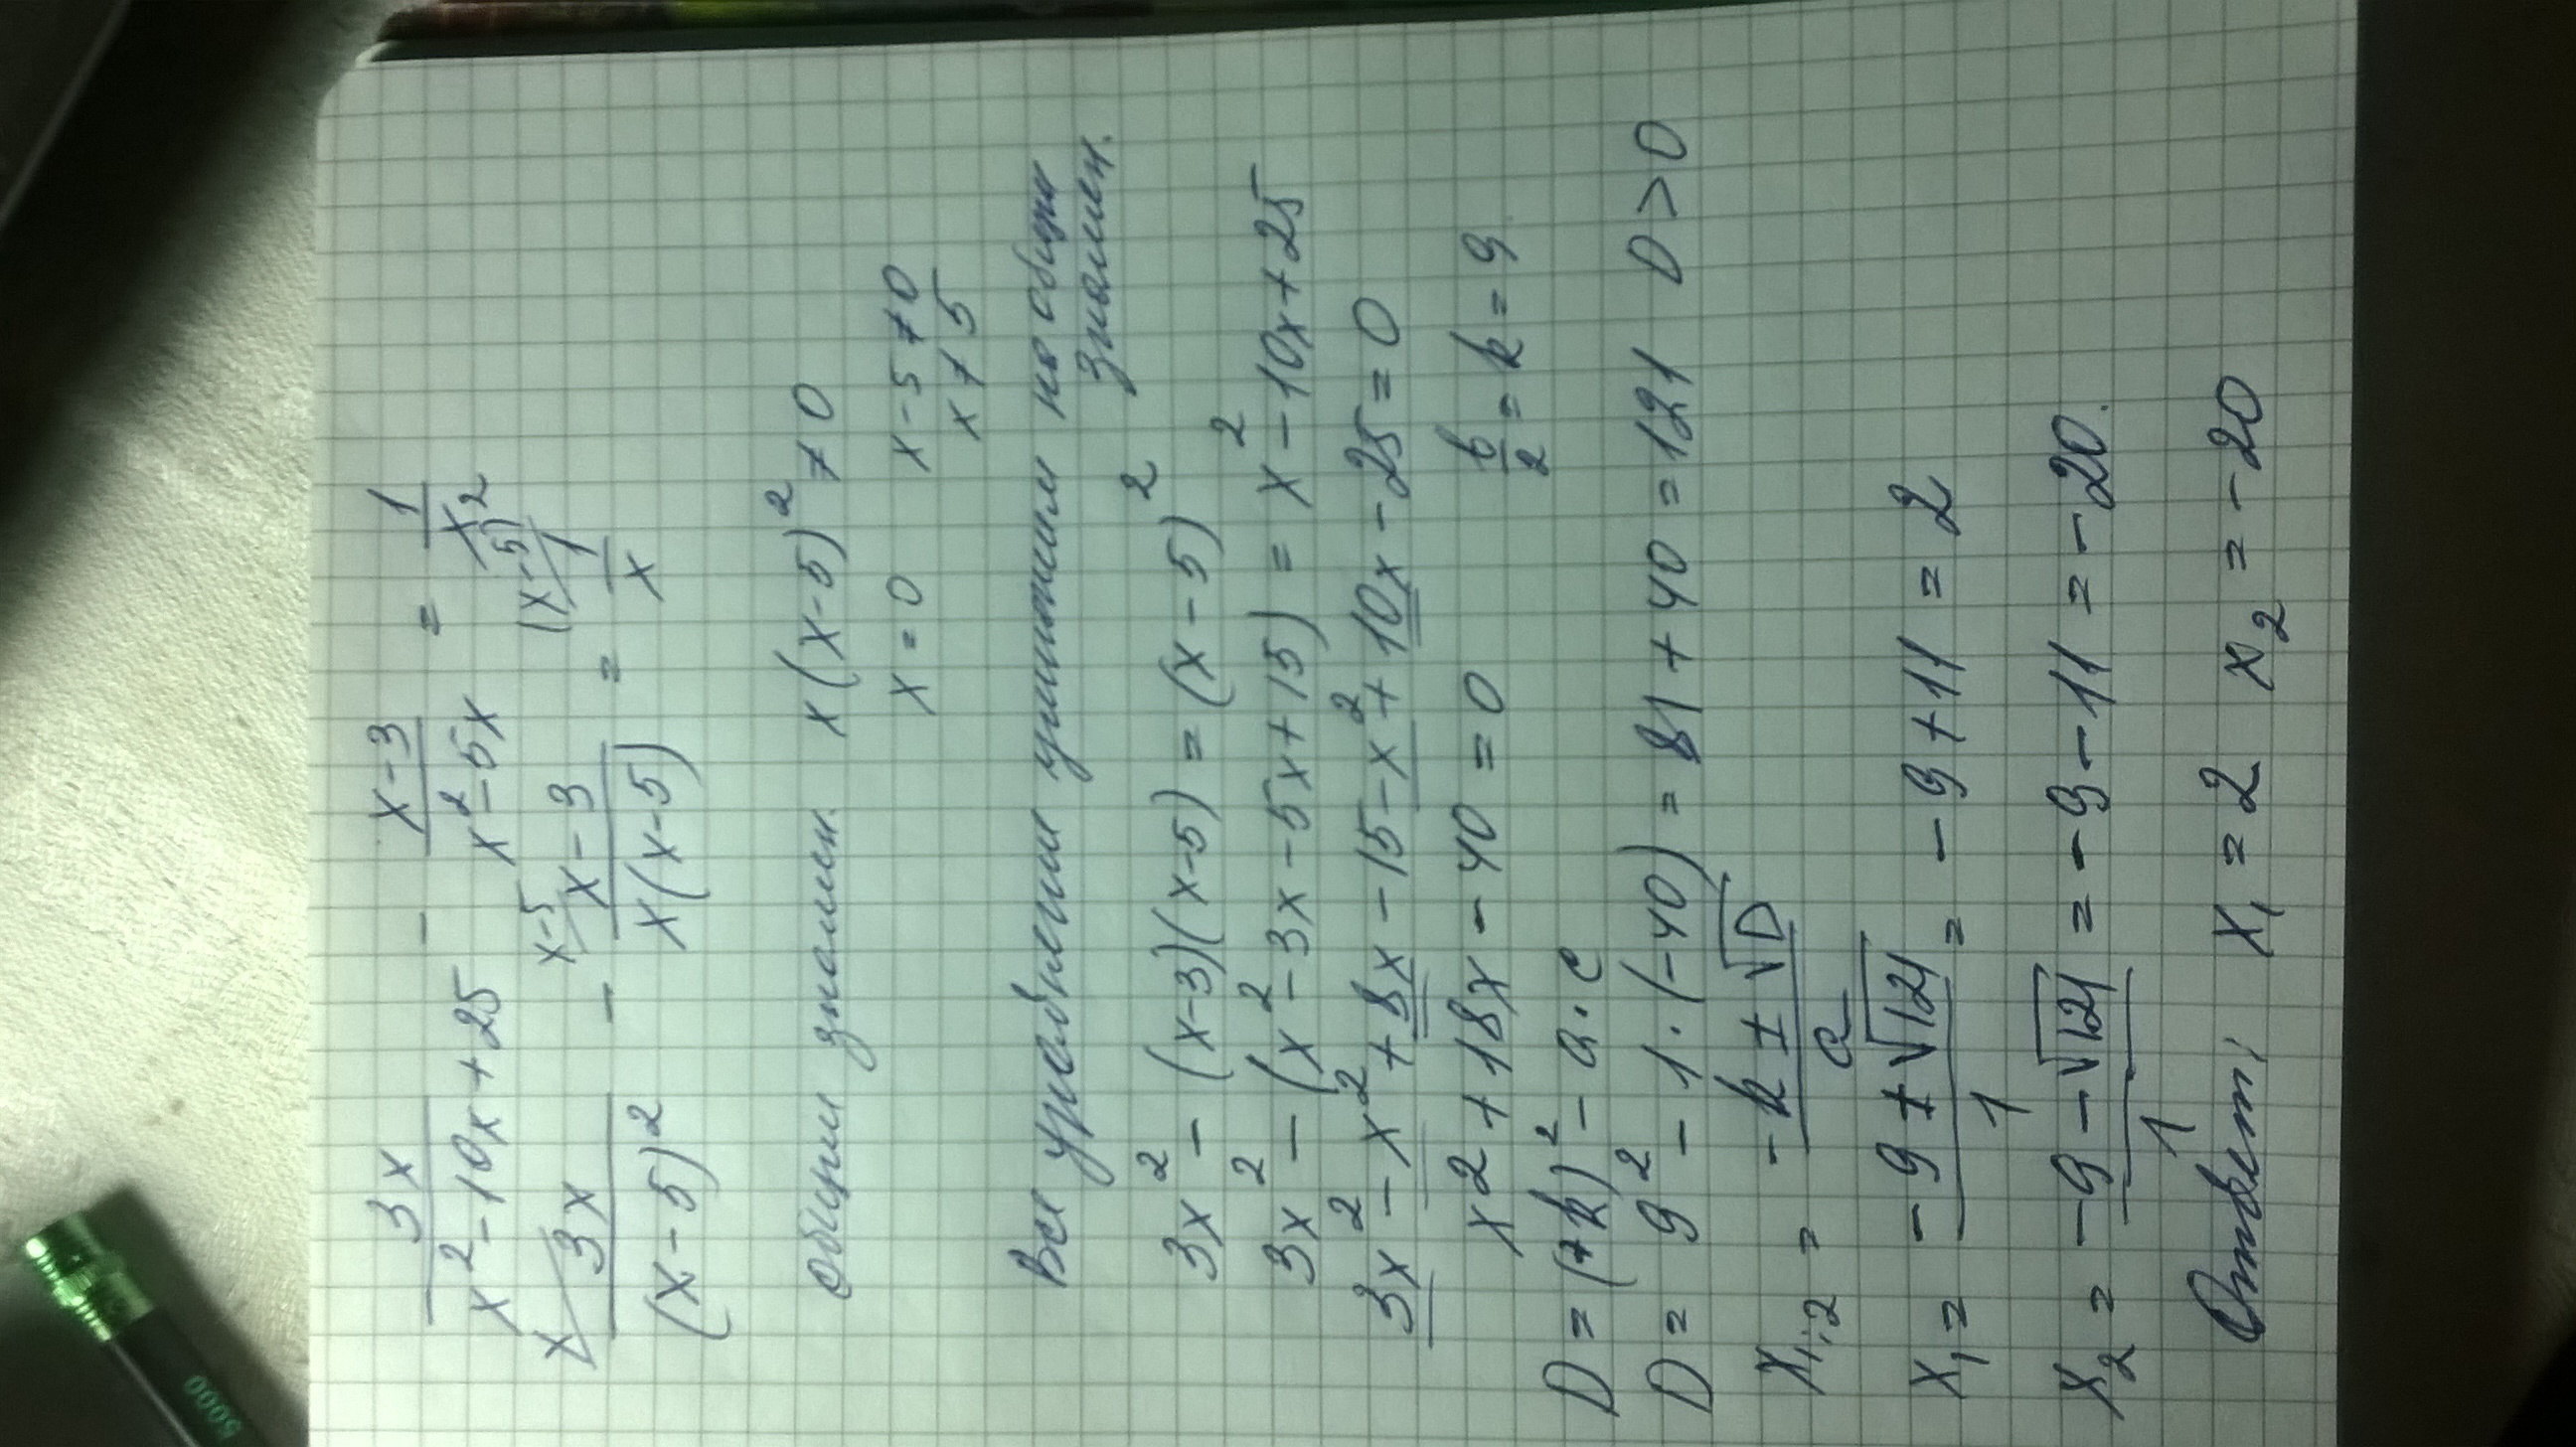 3x/(x²-10x+25) - (x-3)/(x²-5x) = 1/x
x/ 3x/(x-5)² - x-5/ (x-3)/(x(x-5)) = (x-5)²/ 1/x
общий знамен. x(x-5)² ≠ 0
x=0 x-5≠0
x≠5
Все уравнение умножим на общий
знамен.
3x² - (x-3)(x-5) = (x-5)²
3x² - (x²-3x-5x+15) = x²-10x+25
3x²-x²+8x-15-x²+10x-25=0
x²+18x-40=0 b/2=k=9
D=(+k)²-a·c
D= 9² - 1·(-40) = 81+40=121 D>0
x₁,₂ = (-k±√D)/a
x₁= (-9±√121)/1 = -9+11=2
x₂= (-9-√121)/1 = -9-11=-20.
Ответ: x₁=2 x₂=-20
5000